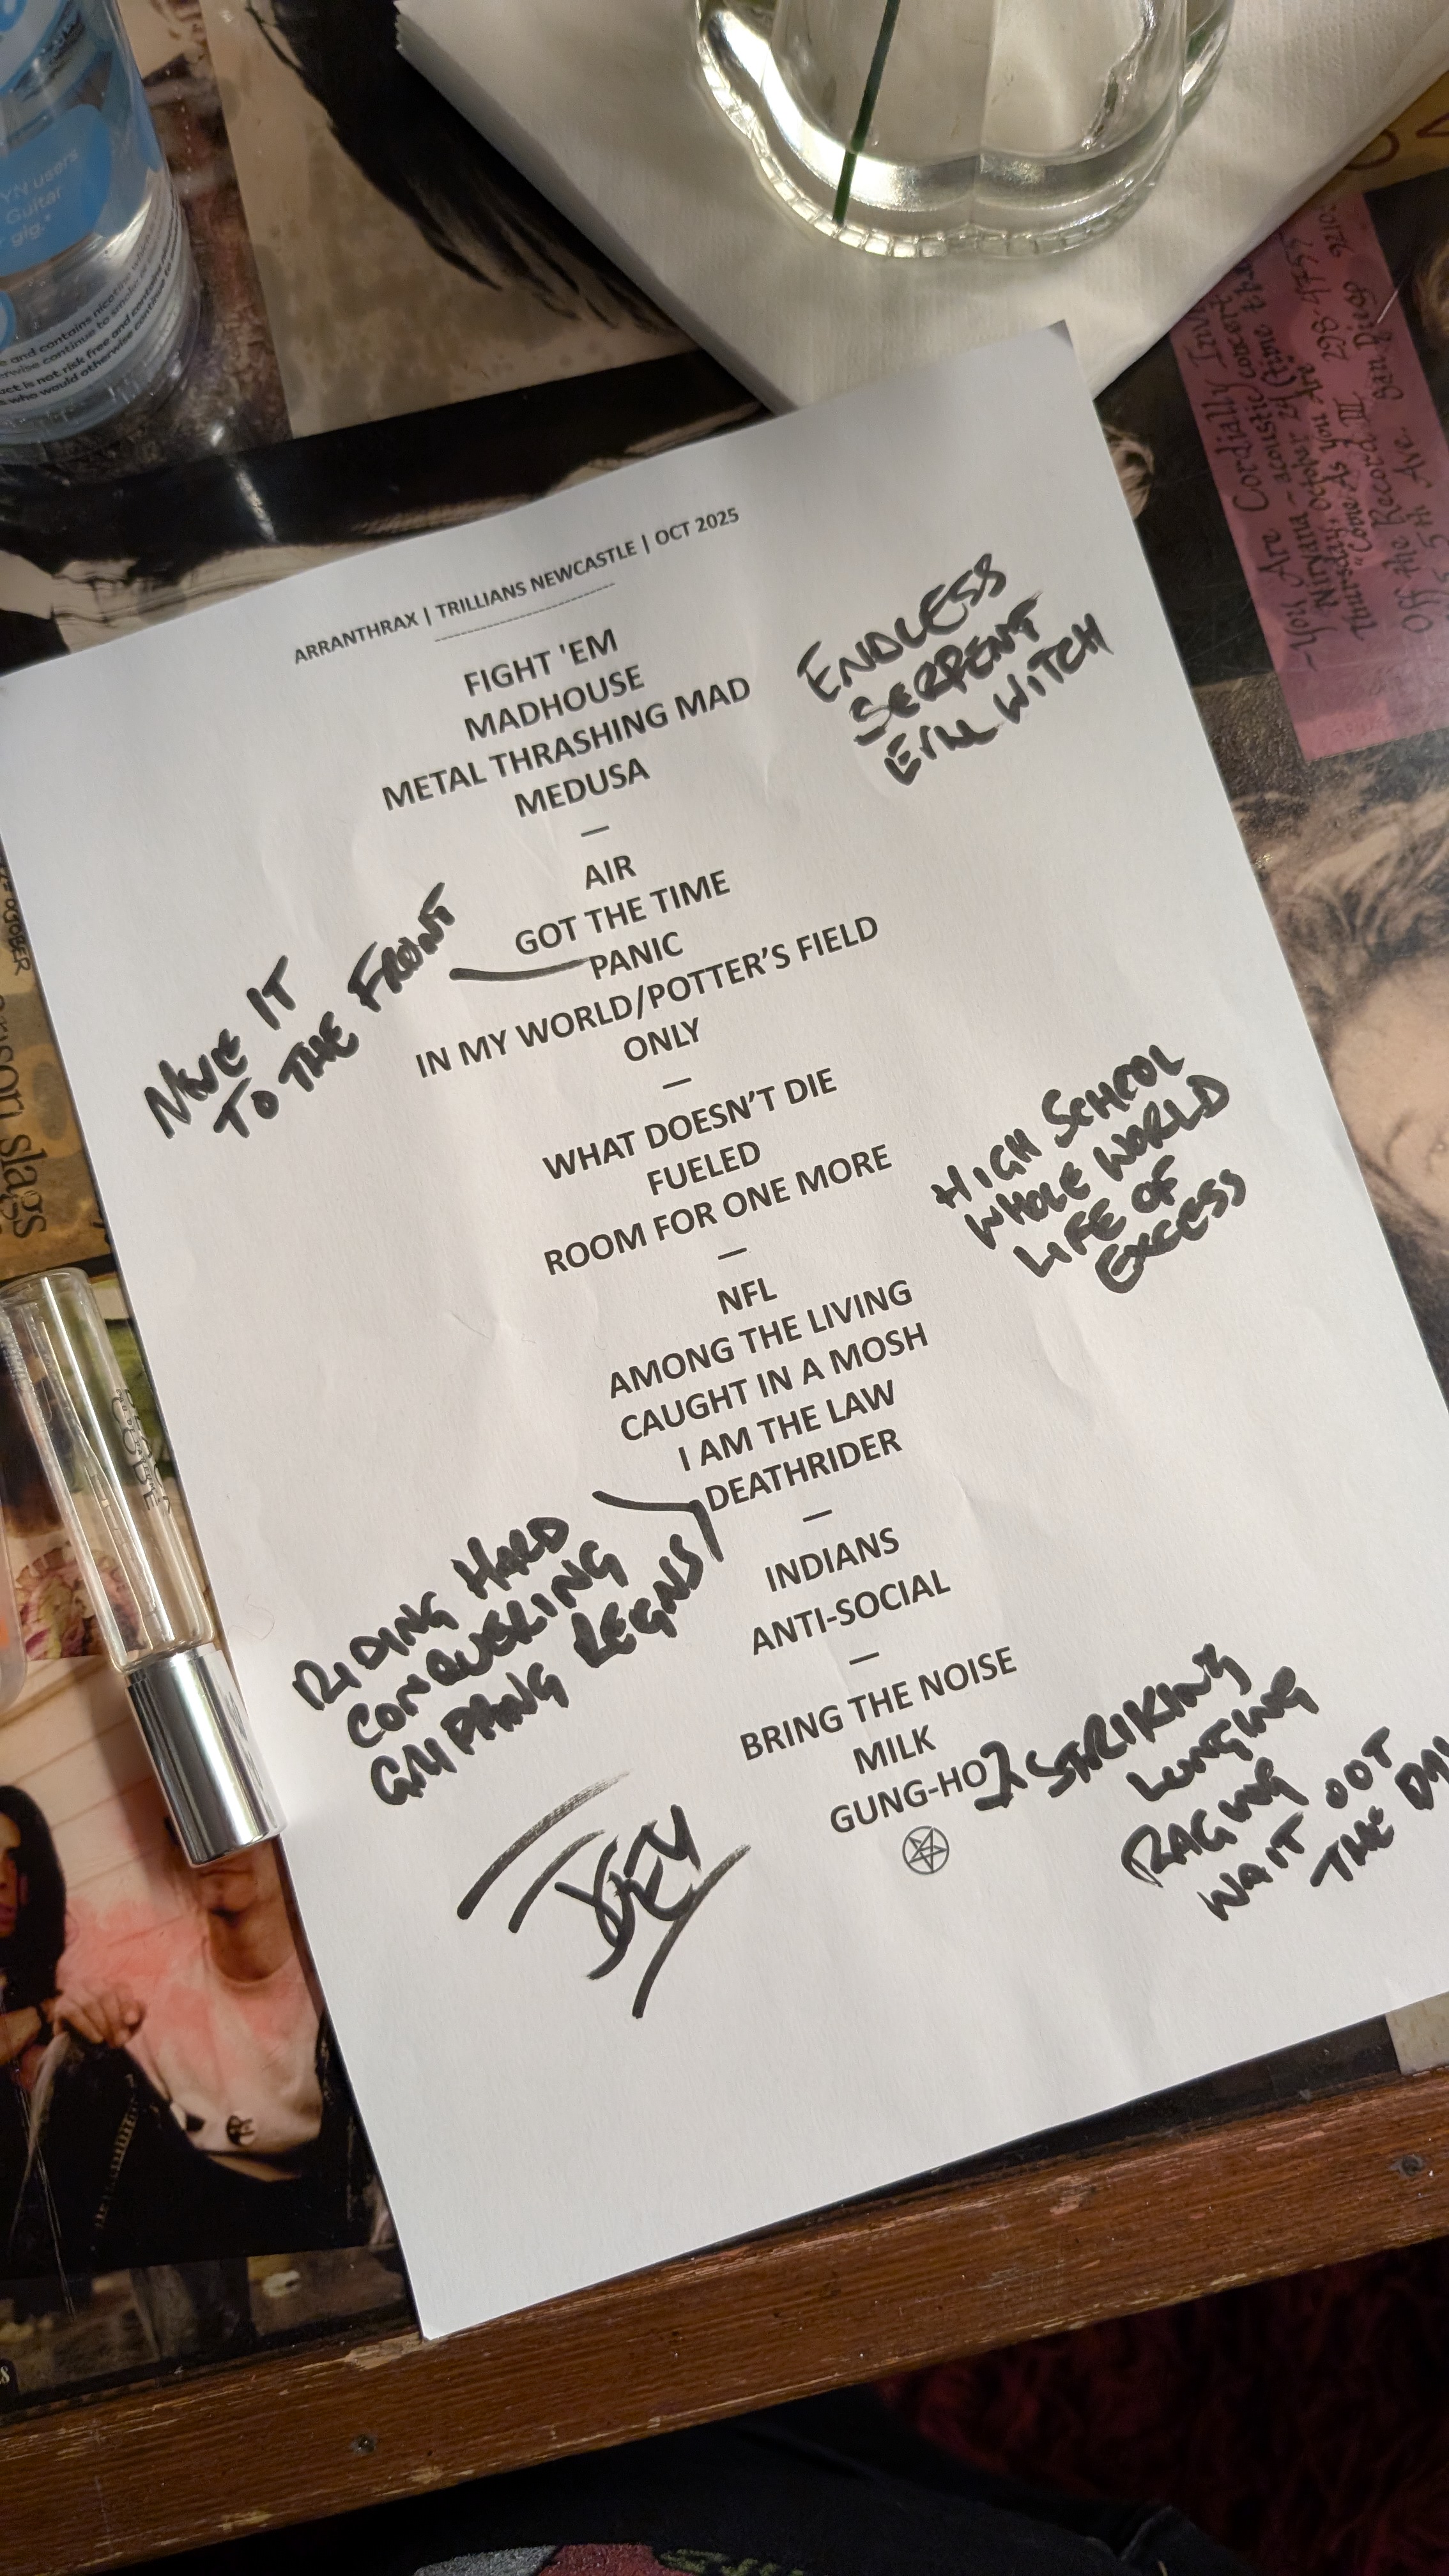 YN users
Guitar
gig.*
e and contains nicotine, wh
erwise continue to smoke
ct is not risk free and contains
s who would otherwise continue to
You Are Cordially Inv
Nirvana - acoustic concert
Thursday, October 24 (time tba
"Come As you Are
Off the Record III 298-4755
5th Ave. San Diego
ARRANTHRAX | TRILLIANS NEWCASTLE | OCT 2025
FIGHT 'EM
MADHOUSE
METAL THRASHING MAD
MEDUSA
—
AIR
GOT THE TIME
PANIC
IN MY WORLD/POTTER’S FIELD
ONLY
—
WHAT DOESN’T DIE
FUELED
ROOM FOR ONE MORE
—
NFL
AMONG THE LIVING
CAUGHT IN A MOSH
I AM THE LAW
DEATHRIDER
—
INDIANS
ANTI-SOCIAL
—
BRING THE NOISE
MILK
GUNG-HO
ENDLESS
SERPENT
EVIL WITCH
MOVE IT
TO THE FRONT
HIGH SCHOOL
WHOLE WORLD
LIFE OF
EXCESS
RIDING HARD
CONQUERING
REGNS
STRIKING
LUNGING
RAGING
WAIT OOT
THE
JOEY